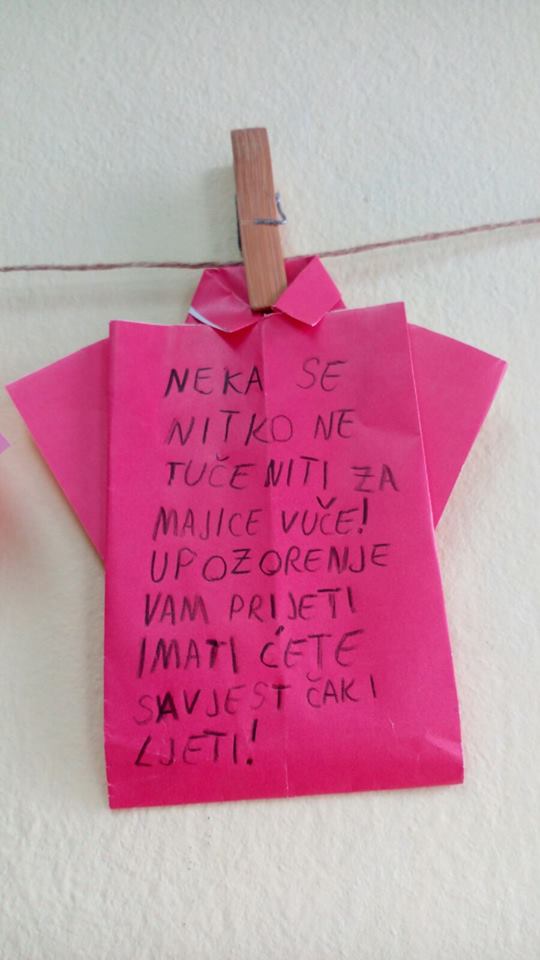 NEKA SE
NITKO NE
TUČE NITI ZA
MAJICE VUČE!
UPOZORENJE
VAM PRIJETI
IMATI ĆETE
SAVJEST ČAK I
LJETI!